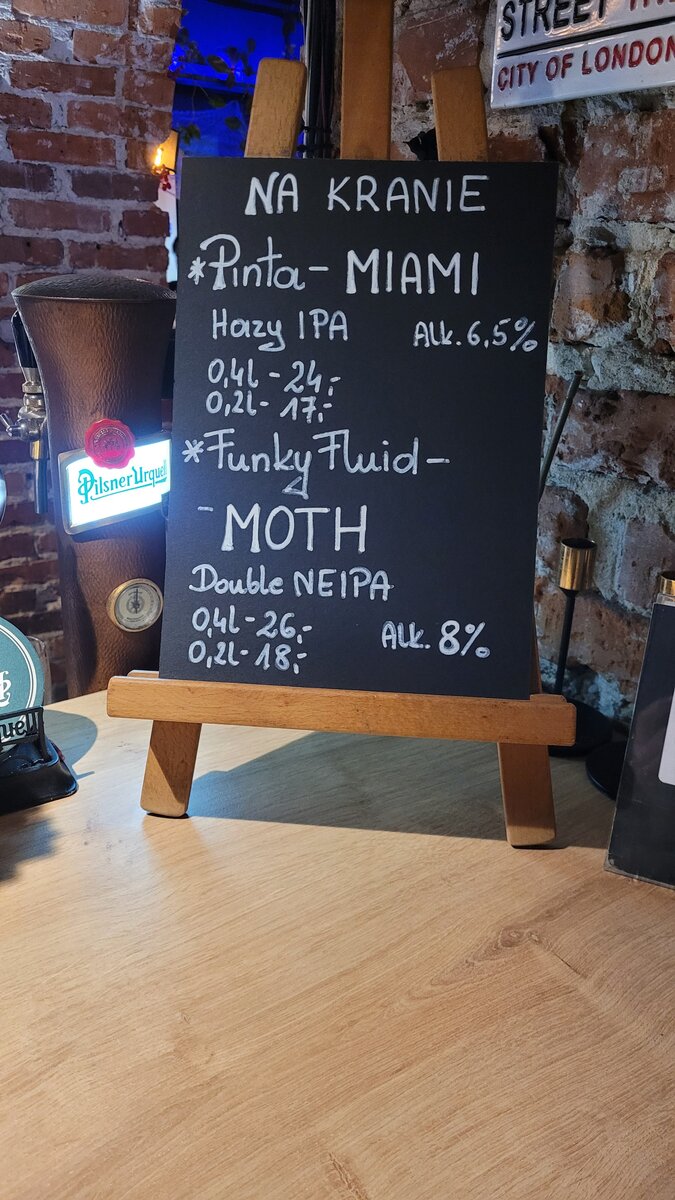 STREET
CITY OF LONDON
NA KRANIE
*Pinta - MIAMI
Hazy IPA Alk. 6,5%
0,4l - 24,-
0,2l - 17,-
*Funky Fluid -
- MOTH
Double NEIPA
0,4l - 26,- Alk. 8%
0,2l - 18,-
Pilsner Urquell